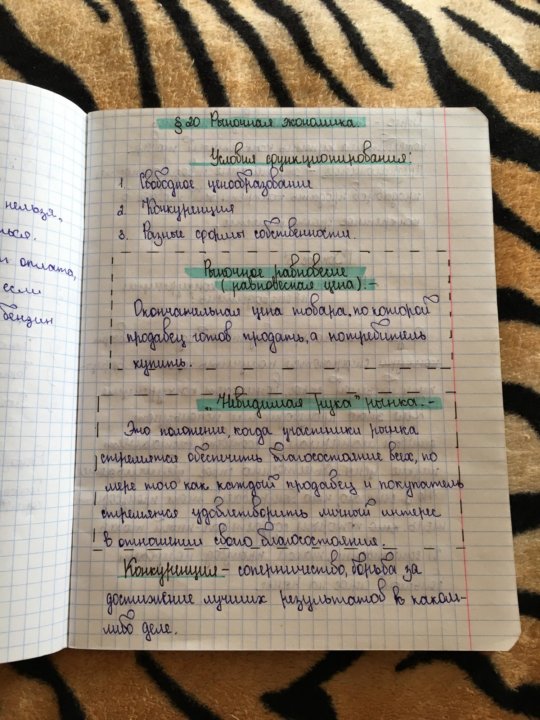 нельзя,
ться.
и оплата,
если
бензин
§ 20 Рыночная экономика.
Условия функционирования:
1. Свободное ценообразование
2. Конкуренция
3. Разные формы собственности.
Рыночное равновесие
(равновесная цена). -
Окончательная цена товара, по которой
продавец готов продать, а потребитель
купить.
"Невидимая рука" рынка. -
Это положение, когда участники рынка
стремятся обеспечить благосостояние всех, по
мере того как каждый продавец и покупатель
стремятся удовлетворить личный интерес
в отношении своего благосостояния.
Конкуренция - соперничество, борьба за
достижение лучших результатов в каком-
либо деле.